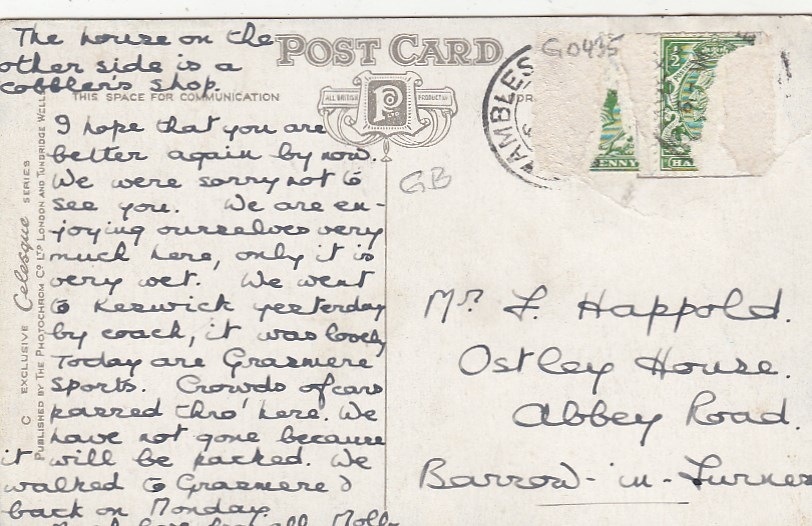 The house on the
other side is a
cobbler's shop.
POST CARD
THIS SPACE FOR COMMUNICATION
ALL BRITISH PRODUCTION
P
I hope that you are
better again by now.
We were sorry not to
see you. We are en-
joying ourselves very
much here, only it is
very wet. We went
to Keswick yesterday
by coach, it was lovely
Today are Grasmere
Sports. Crowds of cars
passed thro' here. We
have not gone because
it will be packed. We
walked to Grasmere &
back on Monday.
Much love from all Molly
EXCLUSIVE Celesque SERIES
PUBLISHED BY THE PHOTOCHROM CO LTD LONDON AND TUNBRIDGE WELLS
AMBLES
G0435
1/2
ENNY
HA
GB
Mr. F. Happold.
Ostley House.
Abbey Road.
Barrow-in-Furness